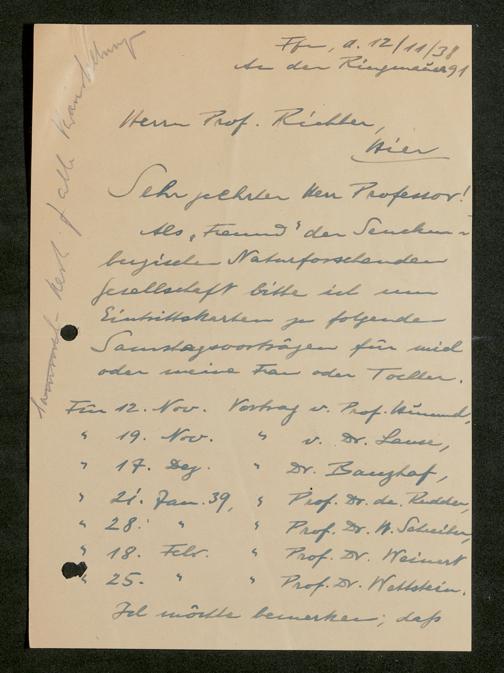 Ffm, d. 12/11/38
An der Ringmauer 91
Herrn Prof. Richter,
Hier
Sehr geehrter Herr Professor!
Als „Freund" der Sencken-
bergischen Naturforschenden
Gesellschaft bitte ich um
Eintrittskarten zu folgenden
Samstagsvorträgen für mich
oder meine Frau oder Tochter.
Für 12. Nov. Vortrag v. Prof.
" 19. Nov. " v. Dr.
" 17. Dez. " Dr. Banzhaf,
" 21. Jan. 39, " Prof. Dr. de Rudder,
" 28. " " Prof. Dr. W.
" 18. Febr. " Prof. Dr. Weinert
" 25. " " Prof. Dr. Wettstein.
Ich möchte bemerken, daß
f. alle